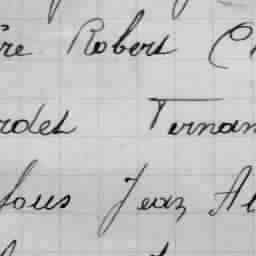 re Robert C
rdet Fernan
fous Jean Al